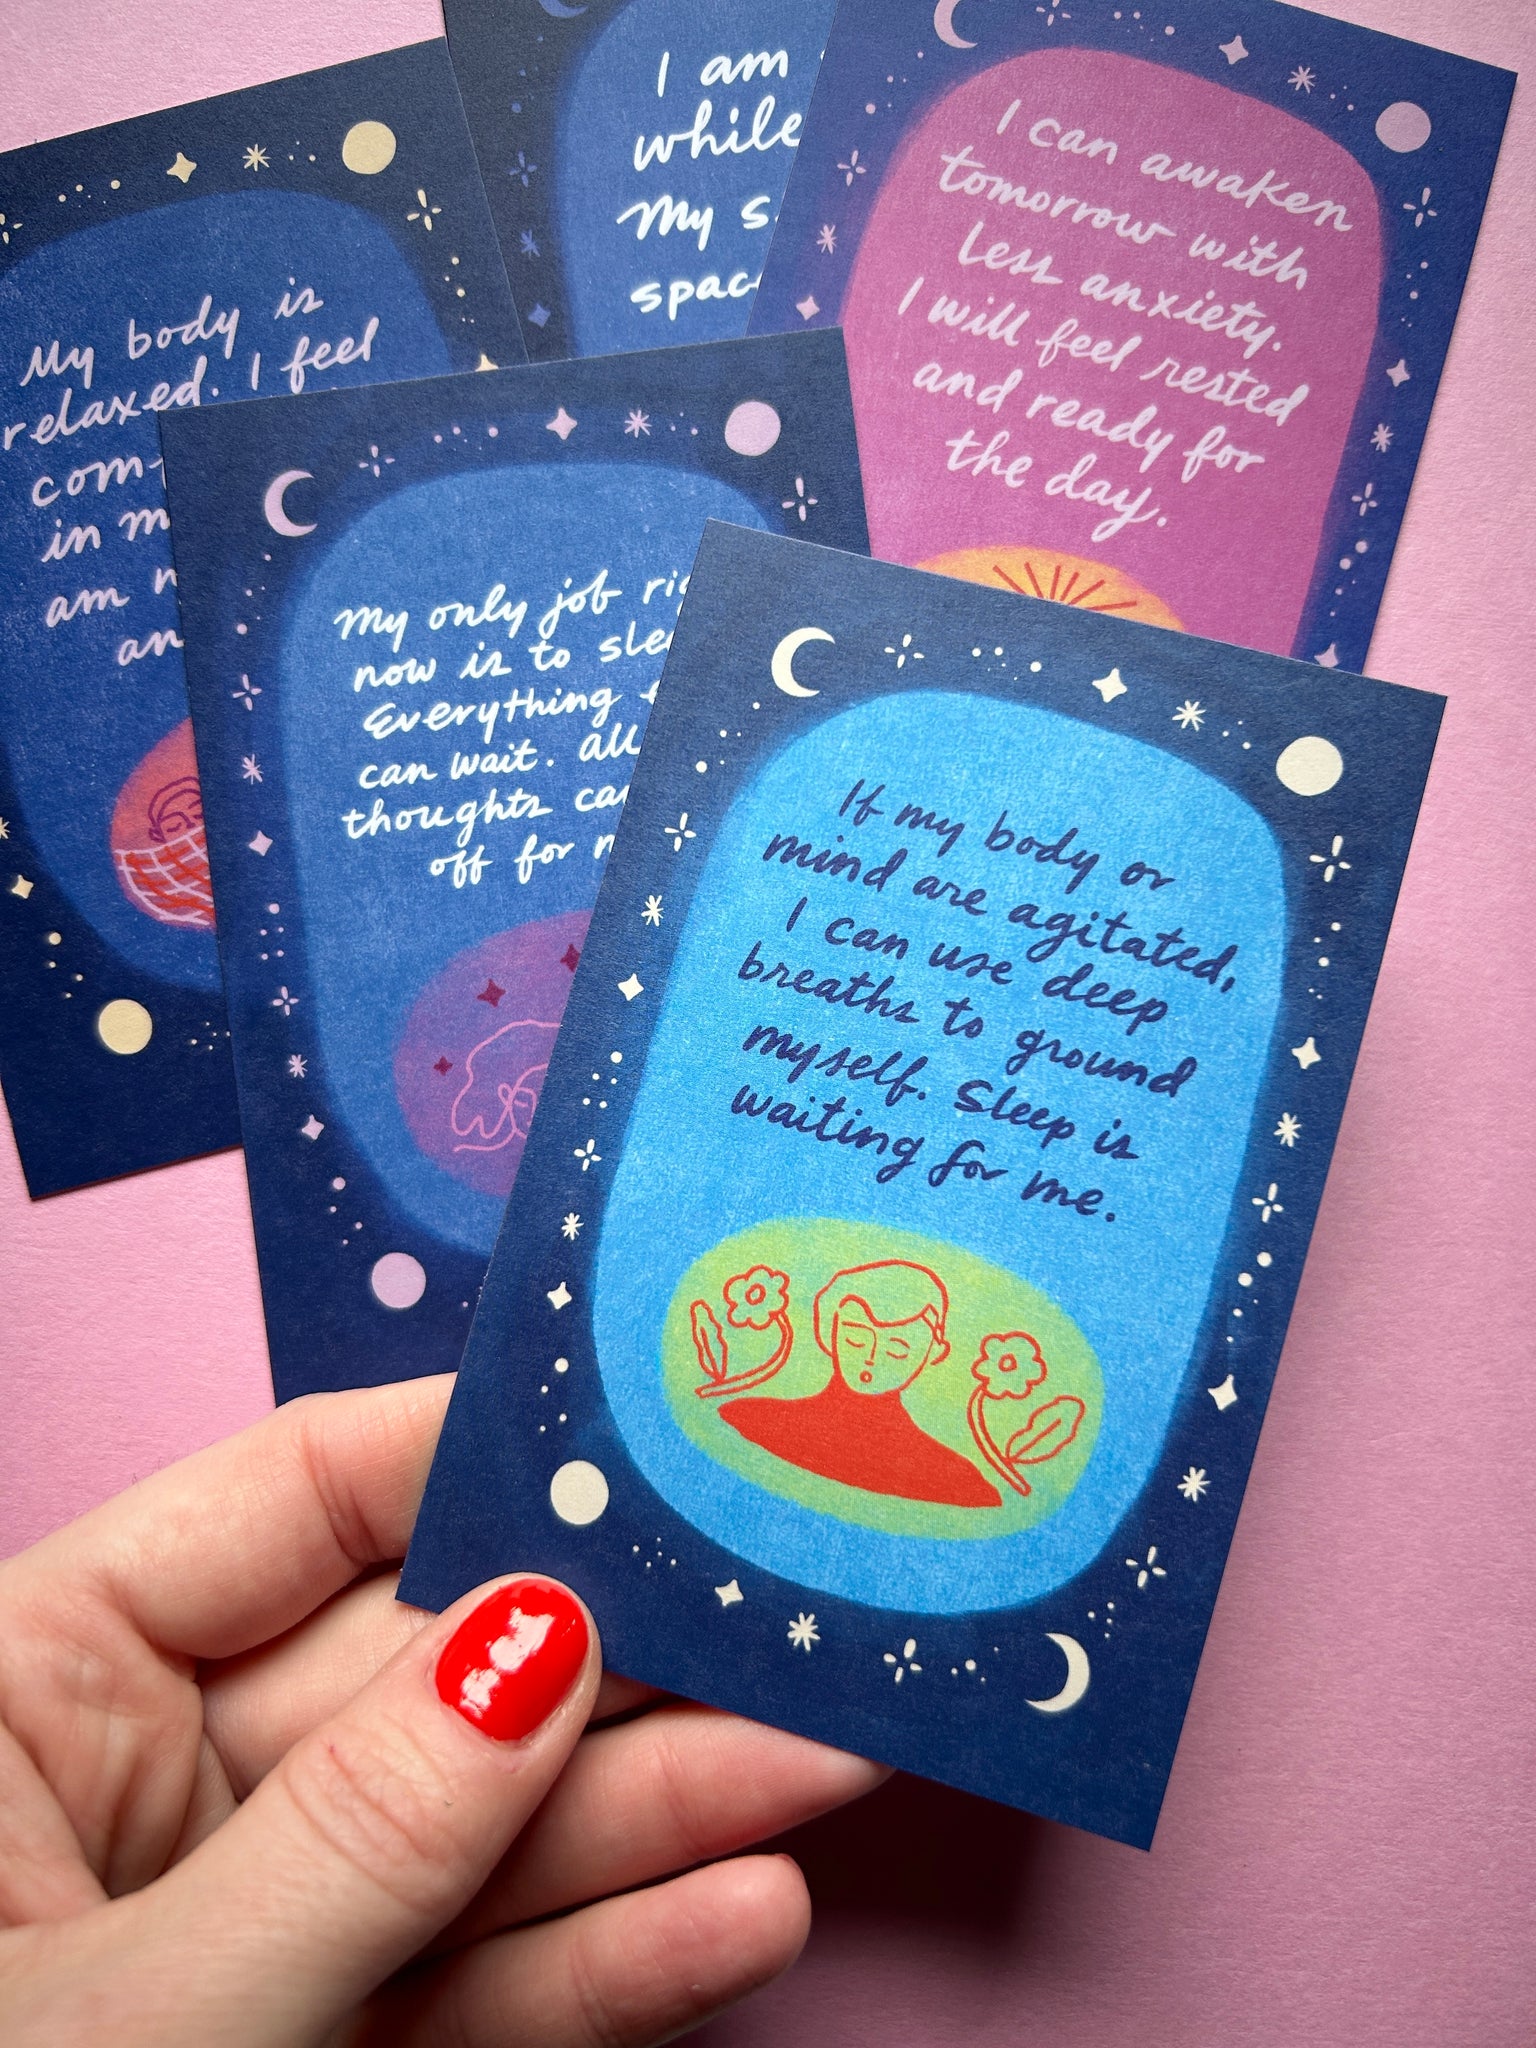 My body is
relaxed. I feel
in
am
I am
while
My
I can awaken
tomorrow with
less anxiety.
I will feel rested
and ready for
the day.
My only job
now is to
Everything
can wait. All
thoughts
off for
If my body or
mind are agitated,
I can use deep
breaths to ground
myself. Sleep is
waiting for me.